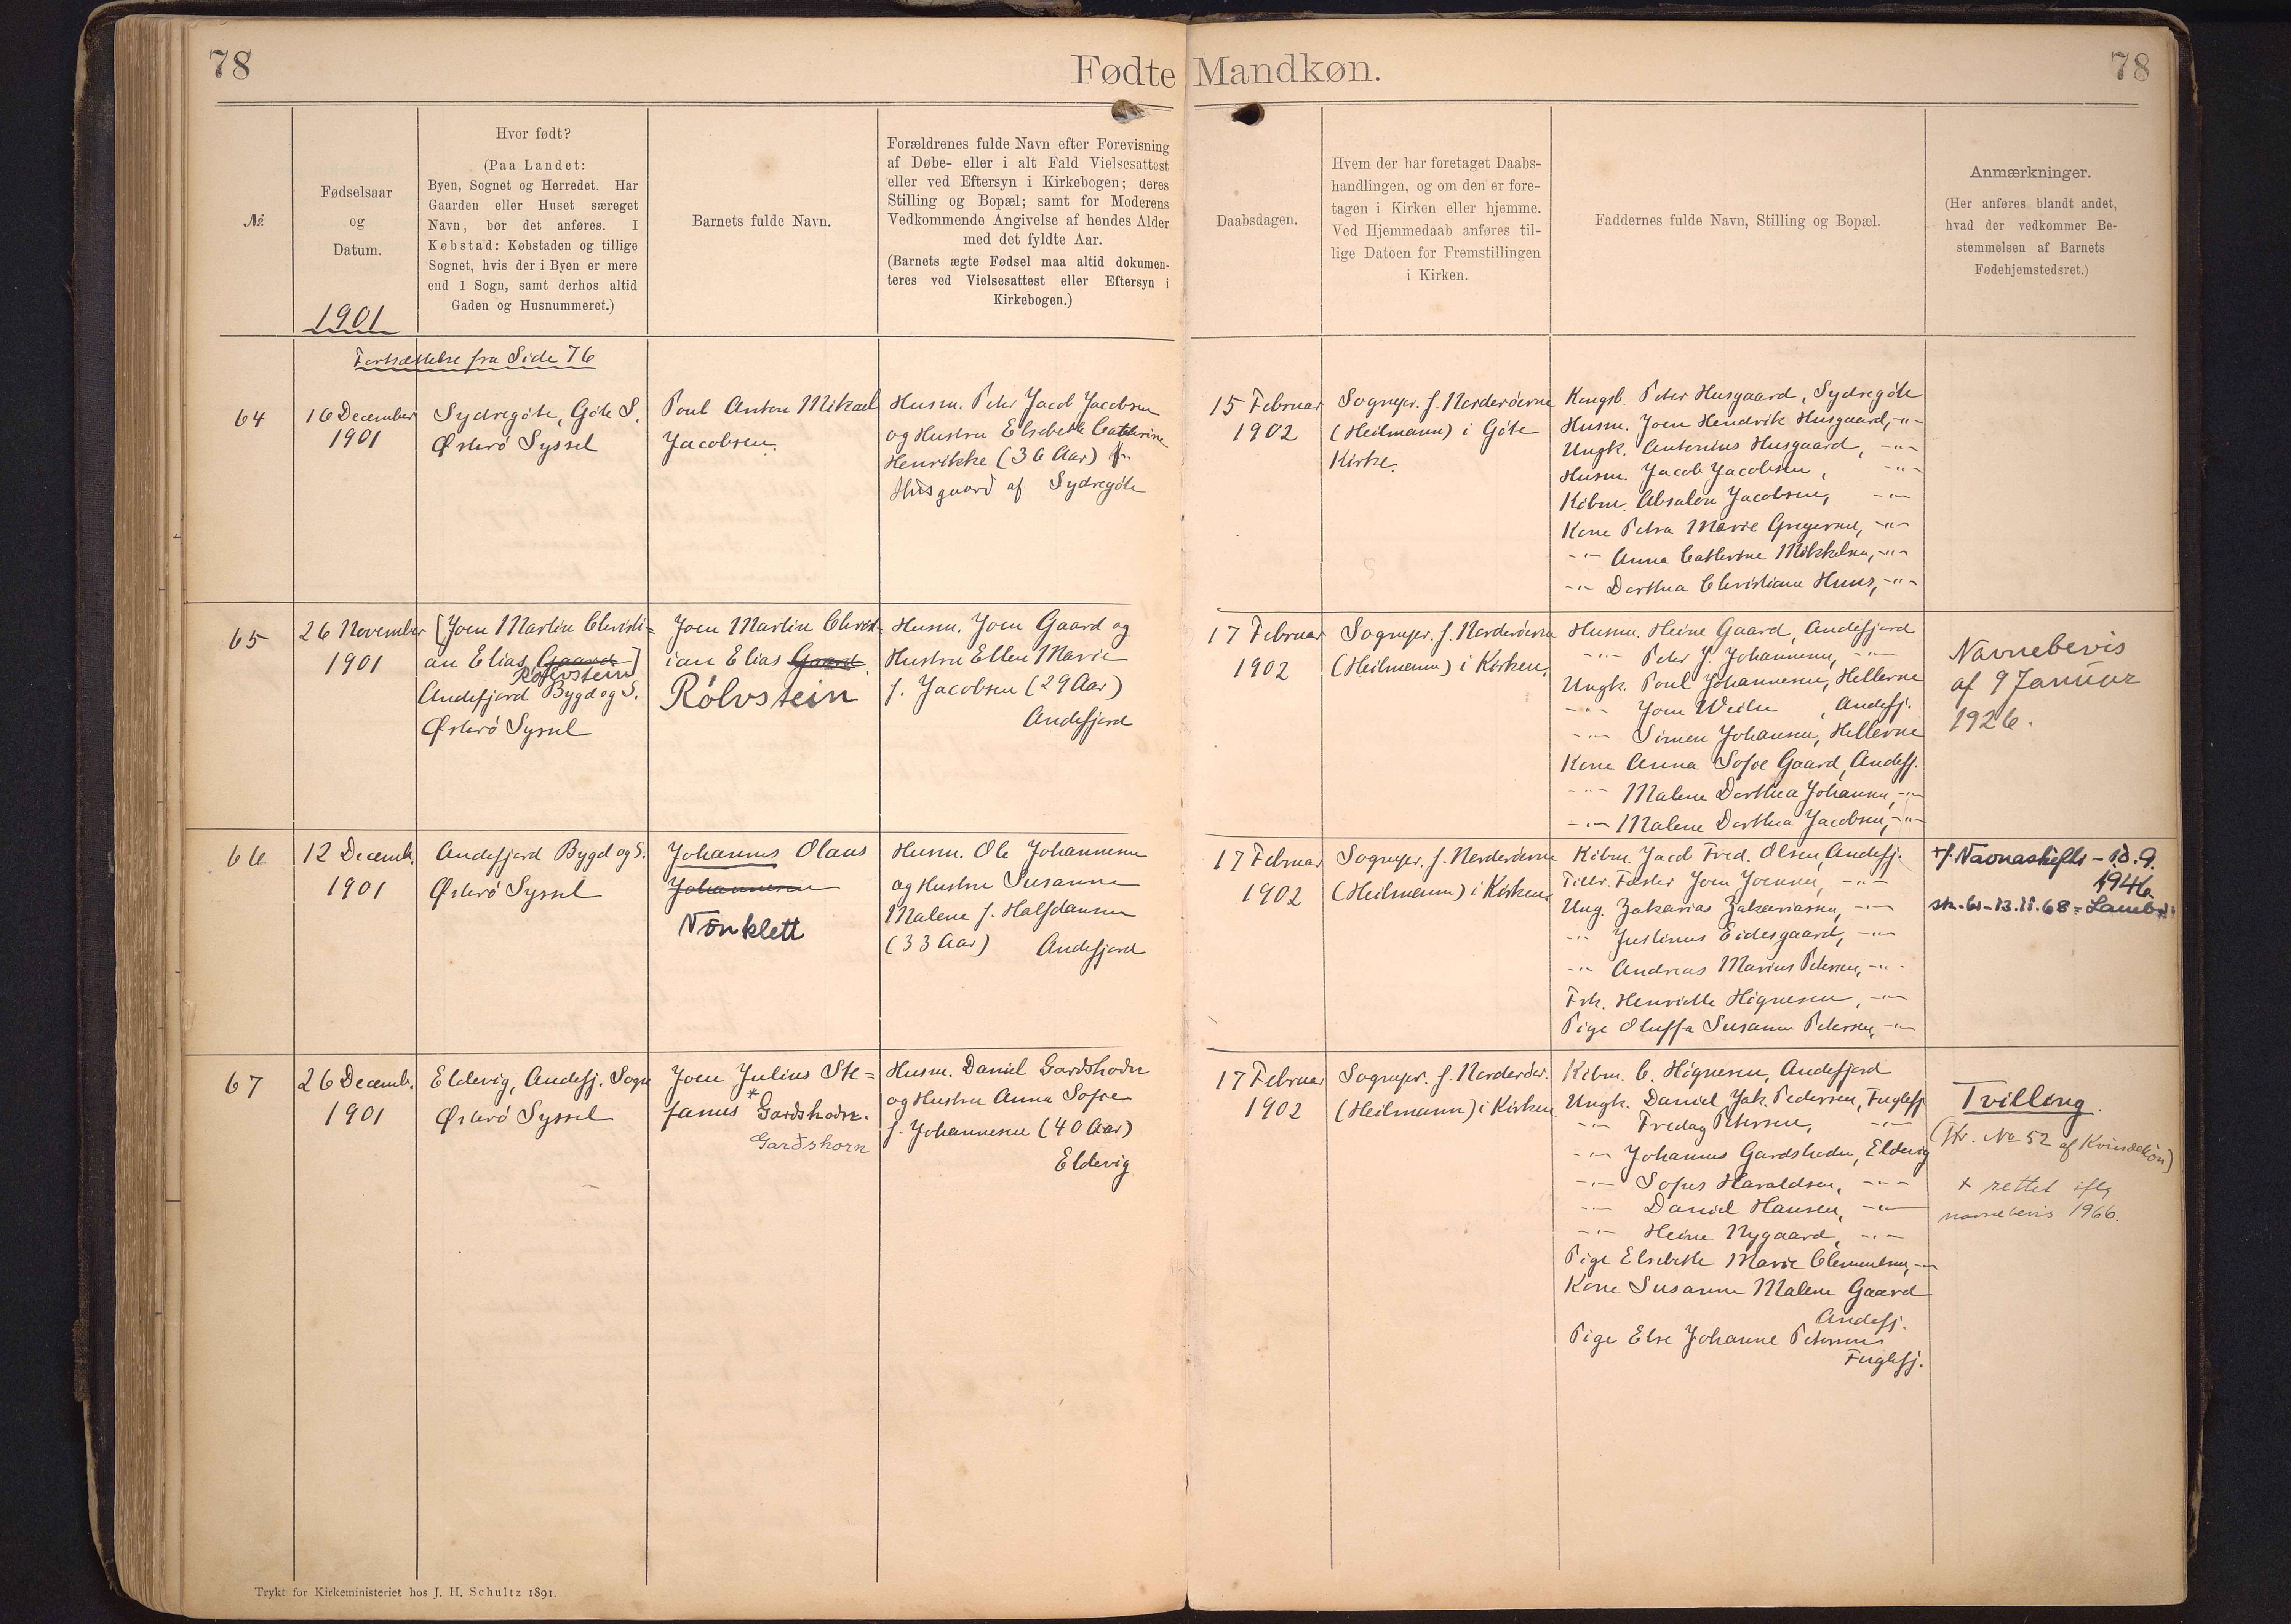 78
Fødte Mandkøn.
78
№
Fødselsaar
og
Datum.
1901
Hvor født?
(Paa Landet:
Byen, Sognet og Herredet. Har
Gaarden eller Huset særeget
Navn, bør det anføres. I
Købstad: Købstaden og tillige
Sognet, hvis der i Byen er mere
end 1 Sogn, samt derhos altid
Gaden og Husnummeret.)
Barnets fulde Navn.
Forældrenes fulde Navn efter Forevisning
af Døbe- eller i alt Fald Vielsesattest
eller ved Eftersyn i Kirkebogen; deres
Stilling og Bopæl; samt for Moderens
Vedkommende Angivelse af hendes Alder
med det fyldte Aar.
(Barnets ægte Fødsel maa altid dokumen-
teres ved Vielsesattest eller Eftersyn i
Kirkebogen.)
Daabsdagen.
Hvem der har foretaget Daabs-
handlingen, og om den er fore-
tagen i Kirken eller hjemme.
Ved Hjemmedaab anføres til-
lige Datoen for Fremstillingen
i Kirken.
Faddernes fulde Navn, Stilling og Bopæl.
Anmærkninger.
(Her anføres blandt andet,
hvad der vedkommer Be-
stemmelsen af Barnets
Fødehjemstedsret.)
Fortsættelse fra Side 76
64
16 December
1901
Sydregöte, Göte S.
Österö Syssel
Poul Anton Mikael
Jacobsen.
Husm. Peter Jacob Jacobsen
og Hustru Elsebeth Cathrine
Henrikke (36 Aar) f.
Husgaard af Sydregöte
15 Februar
1902
Sognepr. f. Norderöerne
(Heilmann) i Göte
Kirke.
Kongsb. Peter Husgaard, Sydregöte
Husm. Joen Hendrik Husgaard, -"-
Ungk. Antonius Husgaard, -"-
Husm. Jacob Jacobsen, -"-
Köbm. Absalon Jacobsen, -"-
Kone Petra Marie Gregersen, -"-
-"- Anna Cathrine Mikkelsen, -"-
-"- Dorthea Christiane Huus, -"-
65
26 November
1901
[Joen Martin Christi=
an Elias Gaard]
Rólvstein
Andefjord Bygd og S.
Österö Syssel
Joen Martin Christ=
ian Elias Gaard.
Rólvstein
Husm. Joen Gaard og
Hustru Ellen Marie
f. Jacobsen (29 Aar)
Andefjord
17 Februar
1902
Sognepr. f. Norderöerne
(Heilmann) i Kirken.
Husm. Heine Gaard, Andefjord
-"- Peter J. Johannesen, -"-
Ungk. Poul Johannesen, Hellerne
-"- Joen Weihe, Andefj.
-"- Simen Johansen, Hellerne
Kone Anna Sofie Gaard, Andefj.
-"- Malene Dorthea Johansen, -"-
-"- Malene Dorthea Jacobsen, -"-
Navnebevis
af 9 Januar
1926.
66
12 Decemb.
1901
Andefjord Bygd og S.
Österö Syssel
Johannes Olaus
Johannesen
Nónklett
Husm. Ole Johannesen
og Hustru Susanne
Malene f. Halfdansen
(33 Aar) Andefjord
17 Februar
1902
Sognepr. f. Norderöerne
(Heilmann) i Kirken.
Köbm. Jacob Fred. Olsen, Andefj.
Joen Joensen, -"-
Ung. Zakarias Zakariasen, -"-
-"- Justinus Eidesgaard, -"-
-"- Andreas Marius Petersen, -"-
Frk. Henriette Högnesen, -"-
Pige Oluffa Susanne Petersen, -"-
+f. Navnaskifti - 18.9.
1946.
sk. br - 13.11.68 -
67
26 Decemb.
1901
Eldevig, Andefj. Sogn
Österö Syssel
Joen Julius Ste=
fanus * Gardshodn.
Garðshorn
Husm. Daniel Gardshodn
og Hustru Anna Sofie
f. Johannesen (40 Aar)
Eldevig
17 Februar
1902
Sognepr. f. Norderöer.
(Heilmann) i Kirken
Köbm. C. Högnesen, Andefjord
Ungk. Daniel Jak. Pedersen, Fuglefj
-"- Fredag Petersen, -"-
-"- Johannes Gardshodn, Eldevig
-"- Sofus Haraldsen, -"-
-"- Daniel Hansen, -"-
-"- Heine Nygaard, -"-
Pige Elsebeth Marie Clementsen, -"-
Kone Susanne Malene Gaard
Andefj.
Pige Else Johanne Petersen
Fuglefj.
Tvilling.
(Fr. No 52 af Kvindekön)
+ rettet iflg
navnebevis 1966.
Trykt for Kirkeministeriet hos J. H. Schultz 1891.